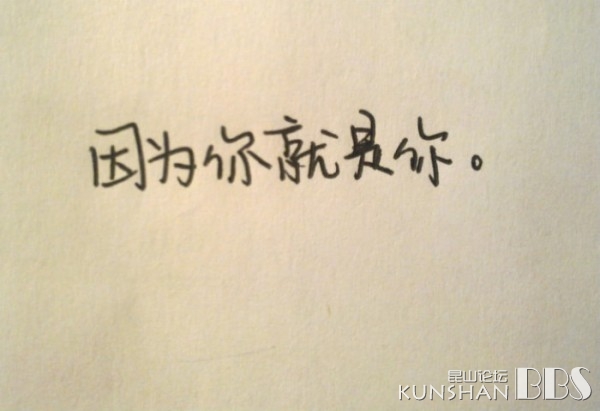 因为你就是你。
昆山论坛
KUNSHAN BBS